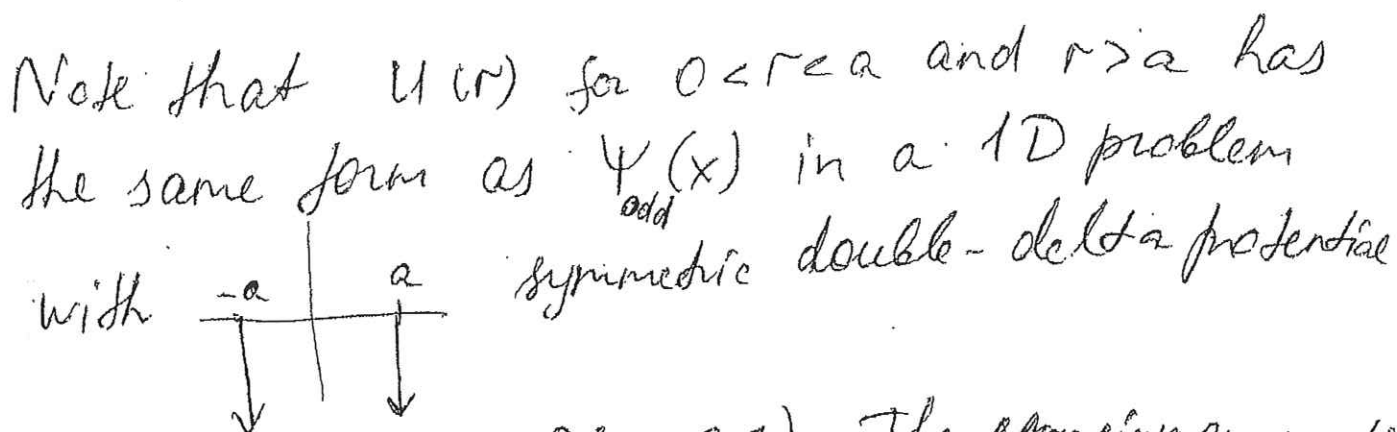 Note that U(r) for 0<r<a and r>a has
the same form as Ψodd(x) in a 1D problem
with -a a symmetric double-delta potential
The